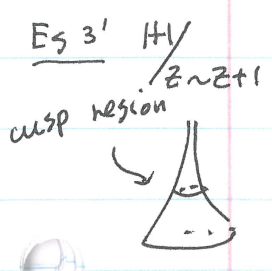 Eg 3' ℍ/
z~z+1
cusp region